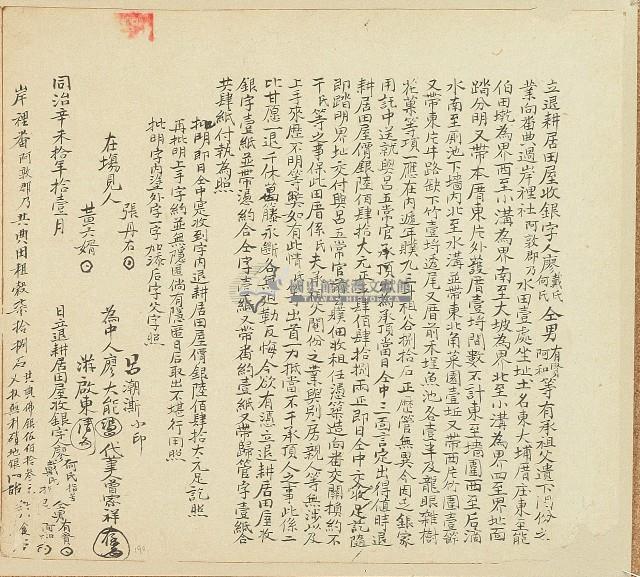 立退耕居田屋收銀字人廖戴氏何氏仝男有賢阿和等有承祖父遺下鬮份
業向番曲過岸裡社阿敦郡乃水田壹處坐址土名東大埔厝庄東至能
伯田墘為界西至小溝為界南至大坡為界北至小溝為界四至界址面
踏分明又帶本厝東片外發厝壹埒間數不計東至墻圍西至后滴
水南至廁池下墻內北至水溝並帶東北角菜園壹坵又帶西片竹圍壹
又帶東片牛路缺下竹壹埒透尾又厝前禾埕魚池各壹半及龍眼雜樹
花菓等項一應在內遞年贌九三租谷捌拾石正歷管無異今因乏銀家
用託中送就與呂五常官承頂為承頂當日仝中三面言定出得值時退
耕居田屋價銀陸佰肆拾大元正肆佰肆拾捌兩正即日仝中交收足訖隨
即踏明界址交付與呂五常官掌贌佃收租任憑築造向番交關換約不
干氏等之事保此田厝係氏夫承祖父鬮份之業與別房親人等無涉以及
上手來歷不明等弊如有此情氏出首力抵當不干承頂人之事此係二
比甘愿一退千休萬藤永斷各無迫勒反悔今欲有憑立退耕居田屋收
銀字壹紙並帶憑約合仝字壹紙又帶番約壹紙又帶歸管字壹紙合
共肆紙付執為照
批明即日仝中寔收到字內退耕居田屋價銀陸佰肆拾大元足訖照
再批明上手字約並無隱匿倘有隱匿日后取出不堪行用照
批明字內塗外字一字加添后字父字照
在場見人 張丹石 黃天婿
呂潮漸小印
為中人廖大能 游啟東
代筆人曾崇祥
同治辛未拾年拾壹月 日立退耕居田屋收銀字廖何氏戴氏仝男有賢阿和
岸裡番阿敦郡乃共典田租穀柒拾捌石